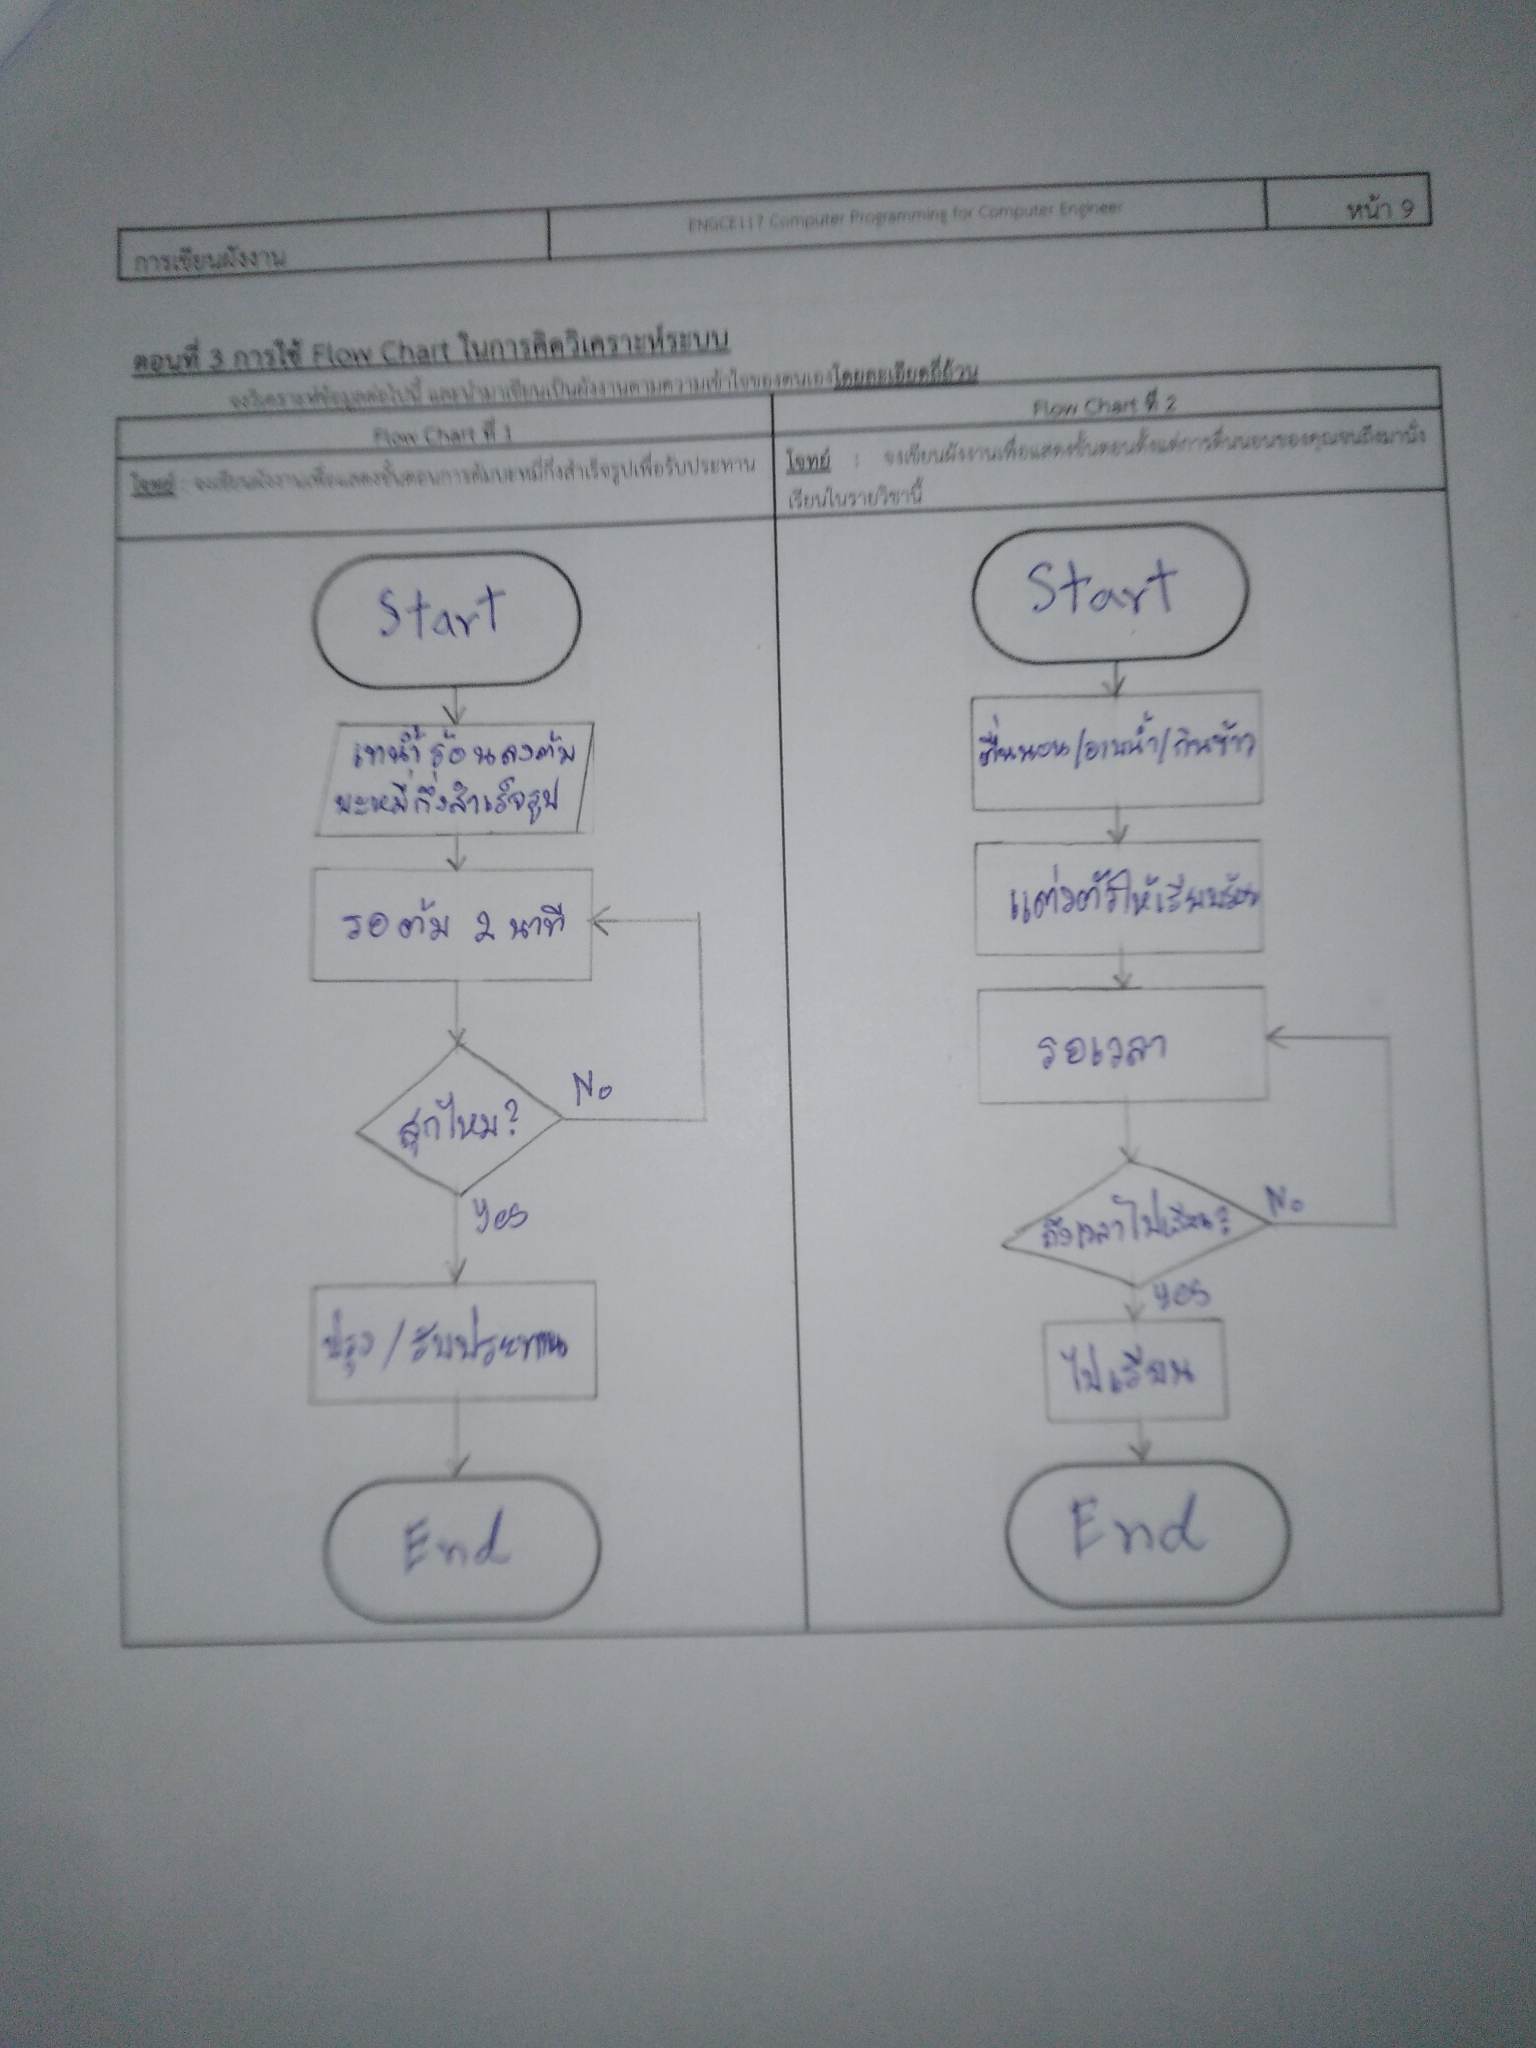 การเขียนผังงาน
ENGCE117 Computer Programming for Computer Engineer
หน้า 9
ตอนที่ 3 การใช้ Flow Chart ในการคิดวิเคราะห์ระบบ
จงวิเคราะห์ข้อมูลต่อไปนี้ และนำมาเขียนเป็นผังงานตามความเข้าใจของตนเองโดยละเอียดถี่ถ้วน
Flow Chart ที่ 1
โจทย์ : จงเขียนผังงานเพื่อแสดงขั้นตอนการต้มบะหมี่กึ่งสำเร็จรูปเพื่อรับประทาน
Start
เทน้ำร้อนลงต้ม
บะหมี่กึ่งสำเร็จรูป
รอต้ม 2 นาที
สุกไหม?
No
Yes
ปรุง/รับประทาน
End
Flow Chart ที่ 2
โจทย์ : จงเขียนผังงานเพื่อแสดงขั้นตอนตั้งแต่การตื่นนอนของคุณจนถึงมานั่ง
เรียนในรายวิชานี้
Start
ตื่นนอน/อาบน้ำ/กินข้าว
แต่งตัวให้เรียบร้อย
รอเวลา
ถึงเวลาไปเรียน?
No
Yes
ไปเรียน
End